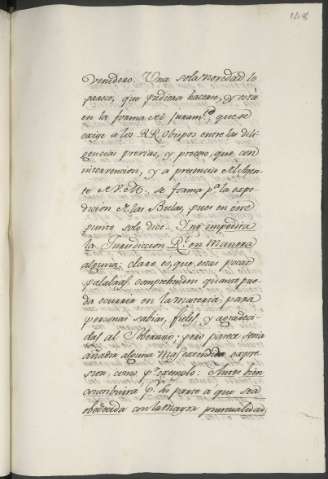 148
vendero. Una sola novedad le
parece, que pudiera hacerse, y esta
en la forma del Juram.to que se
exige a los RR. Obispos entre las dili
gencias previas, y proceso, que con
intervencion, y a presencia del Agen
te de V.M. se forma p.a la expe
dicion de las Bulas, pues en este
punto solo dice: Ino impedira
la Jurisdiccion R.l en manera
alguna: claro es, que estas pocas
palabras comprehenden quanto pue
da ocurrir en la materia, para
personas sabias, fieles, y agradeci
das al Soberano; pero parece seria
añadir alguna mas extendida expre
sion, como p.r exemplo: Antes bien
contribuira p.r su parte a que sea
obedecida con la mayor puntualidad